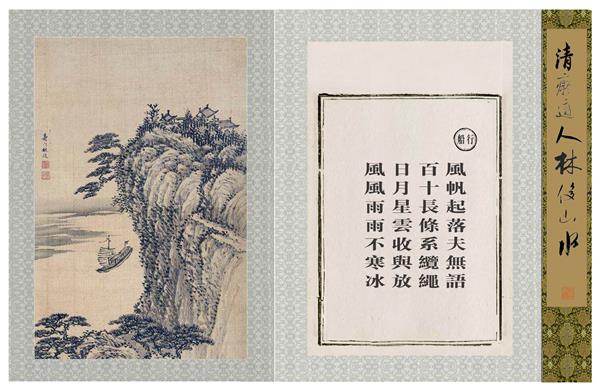 清
道人林俊山水
行船
風帆起落夫無語
百十長條系纜繩
日月星雲收與放
風風雨雨不寒冰